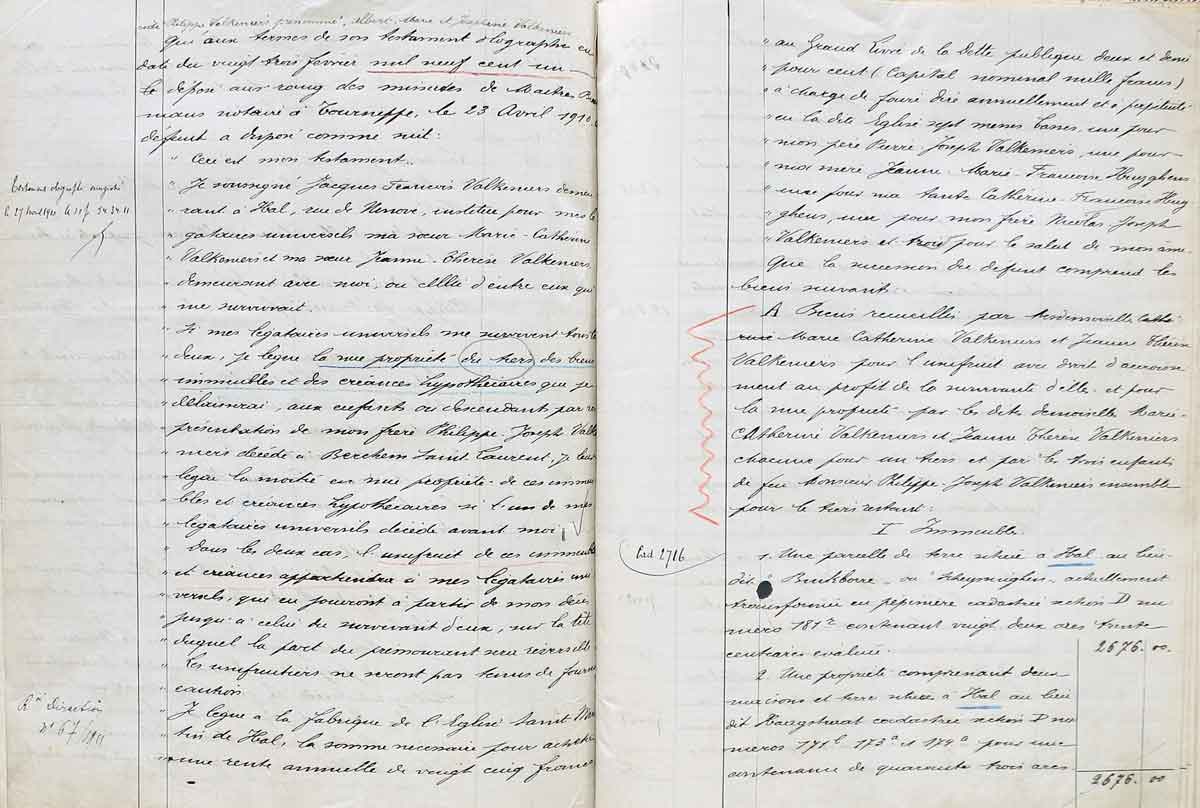 Philippe Valkeniers prénommé, Albert, Marie et
Qu'aux termes de son testament olographe en
date du vingt trois février mil neuf cent un
déposé aux rang des minutes de Maître
notaire à Tourneppe, le 23 Avril 1910,
défunt a disposé comme suit:
" Ceci est mon testament.
" Je soussigné Jacques Francois Valkeniers demeu
" rant à Hal, rue de Ninove, institue pour mes lé
" gataires universels ma sœur Marie-Catherine
" Valkeniers et ma sœur Jeanne-Thérèse Valkeniers
" demeurant avec moi, ou celle d'entre eux qui
" me survivrait
" Si mes légataires universels me survivent tous le
" deux, je lègue la nue propriété du tiers des biens
" immeubles et des créances hypothécaires que je
" délaisserai, aux enfants ou descendant par re
" présentation de mon frère Philippe-Joseph Valke
" niers décédé à Berchem Saint Laurent; je leur
" lègue la moitié en nue propriété de ces immeu
" bles et créances hypothécaires si l'un de mes
" légataires universels décède avant moi,
" Dans les deux cas, l'usufruit de ces immeubles
" et créances appartiendra à mes légataires uni
" versels, qui en jouiront à partir de mon décès
" jusqu'à celui du survivant d'eux, sur la tête
" duquel la part du prémourant sera réversible
" Les usufruitiers ne seront pas tenus de fournir
" caution
" Je lègue à la fabrique de l'Eglise Saint Mar
" tin de Hal, la somme nécessaire pour acheter
" une rente annuelle de vingt cinq francs
Testament olographe enregistré
le 27 Avril 1910
Direction
n° 67/1911
" au Grand Livre de la Dette publique deux et demi
" pour cent (Capital nominal mille francs)
" à charge de faire dire annuellement et à perpétuité
" en la dite Eglise sept messes basses, une pour
" mon père Pierre Joseph Valkeniers, une pour
" moi mère Jeanne-Marie-Francoise Huyghens
" une pour ma tante Catherine-Francoise Huy
" ghens, une pour mon frère Nicolas-Joseph
" Valkeniers et trois pour le salut de mon âme
Que la succession du défunt comprend les
biens suivant:
A Biens recueillis par Mesdemoiselles Cathé
rine Marie Catherine Valkeniers et Jeanne Thérèse
Valkeniers pour l'usufruit avec droit d'accroisse
ment au profit de la survivante d'elle et pour
la nue propriété par les dite demoiselle Marie-
Catherine Valkeniers et Jeanne Thérèse Valkeniers
chacune pour un tiers et par les trois enfants
de feu Monsieur Philippe-Joseph Valkeniers ensemble
pour le tiers restant:
I Immeubles.
Card 2716
1. Une parcelle de terre située à Hal au lieu
dit " Binkborre " ou actuellement
transformée en pépinière cadastrée section D nu
méros 181 contenant vingt deux ares trente
centiares évaluée 2676.00
2. Une propriété comprenant deux
maisons et terre située à Hal au lieu
dit cadastrée section D nu
méros 171 173a et 174a pour une
contenance de quarante trois ares
2676.00